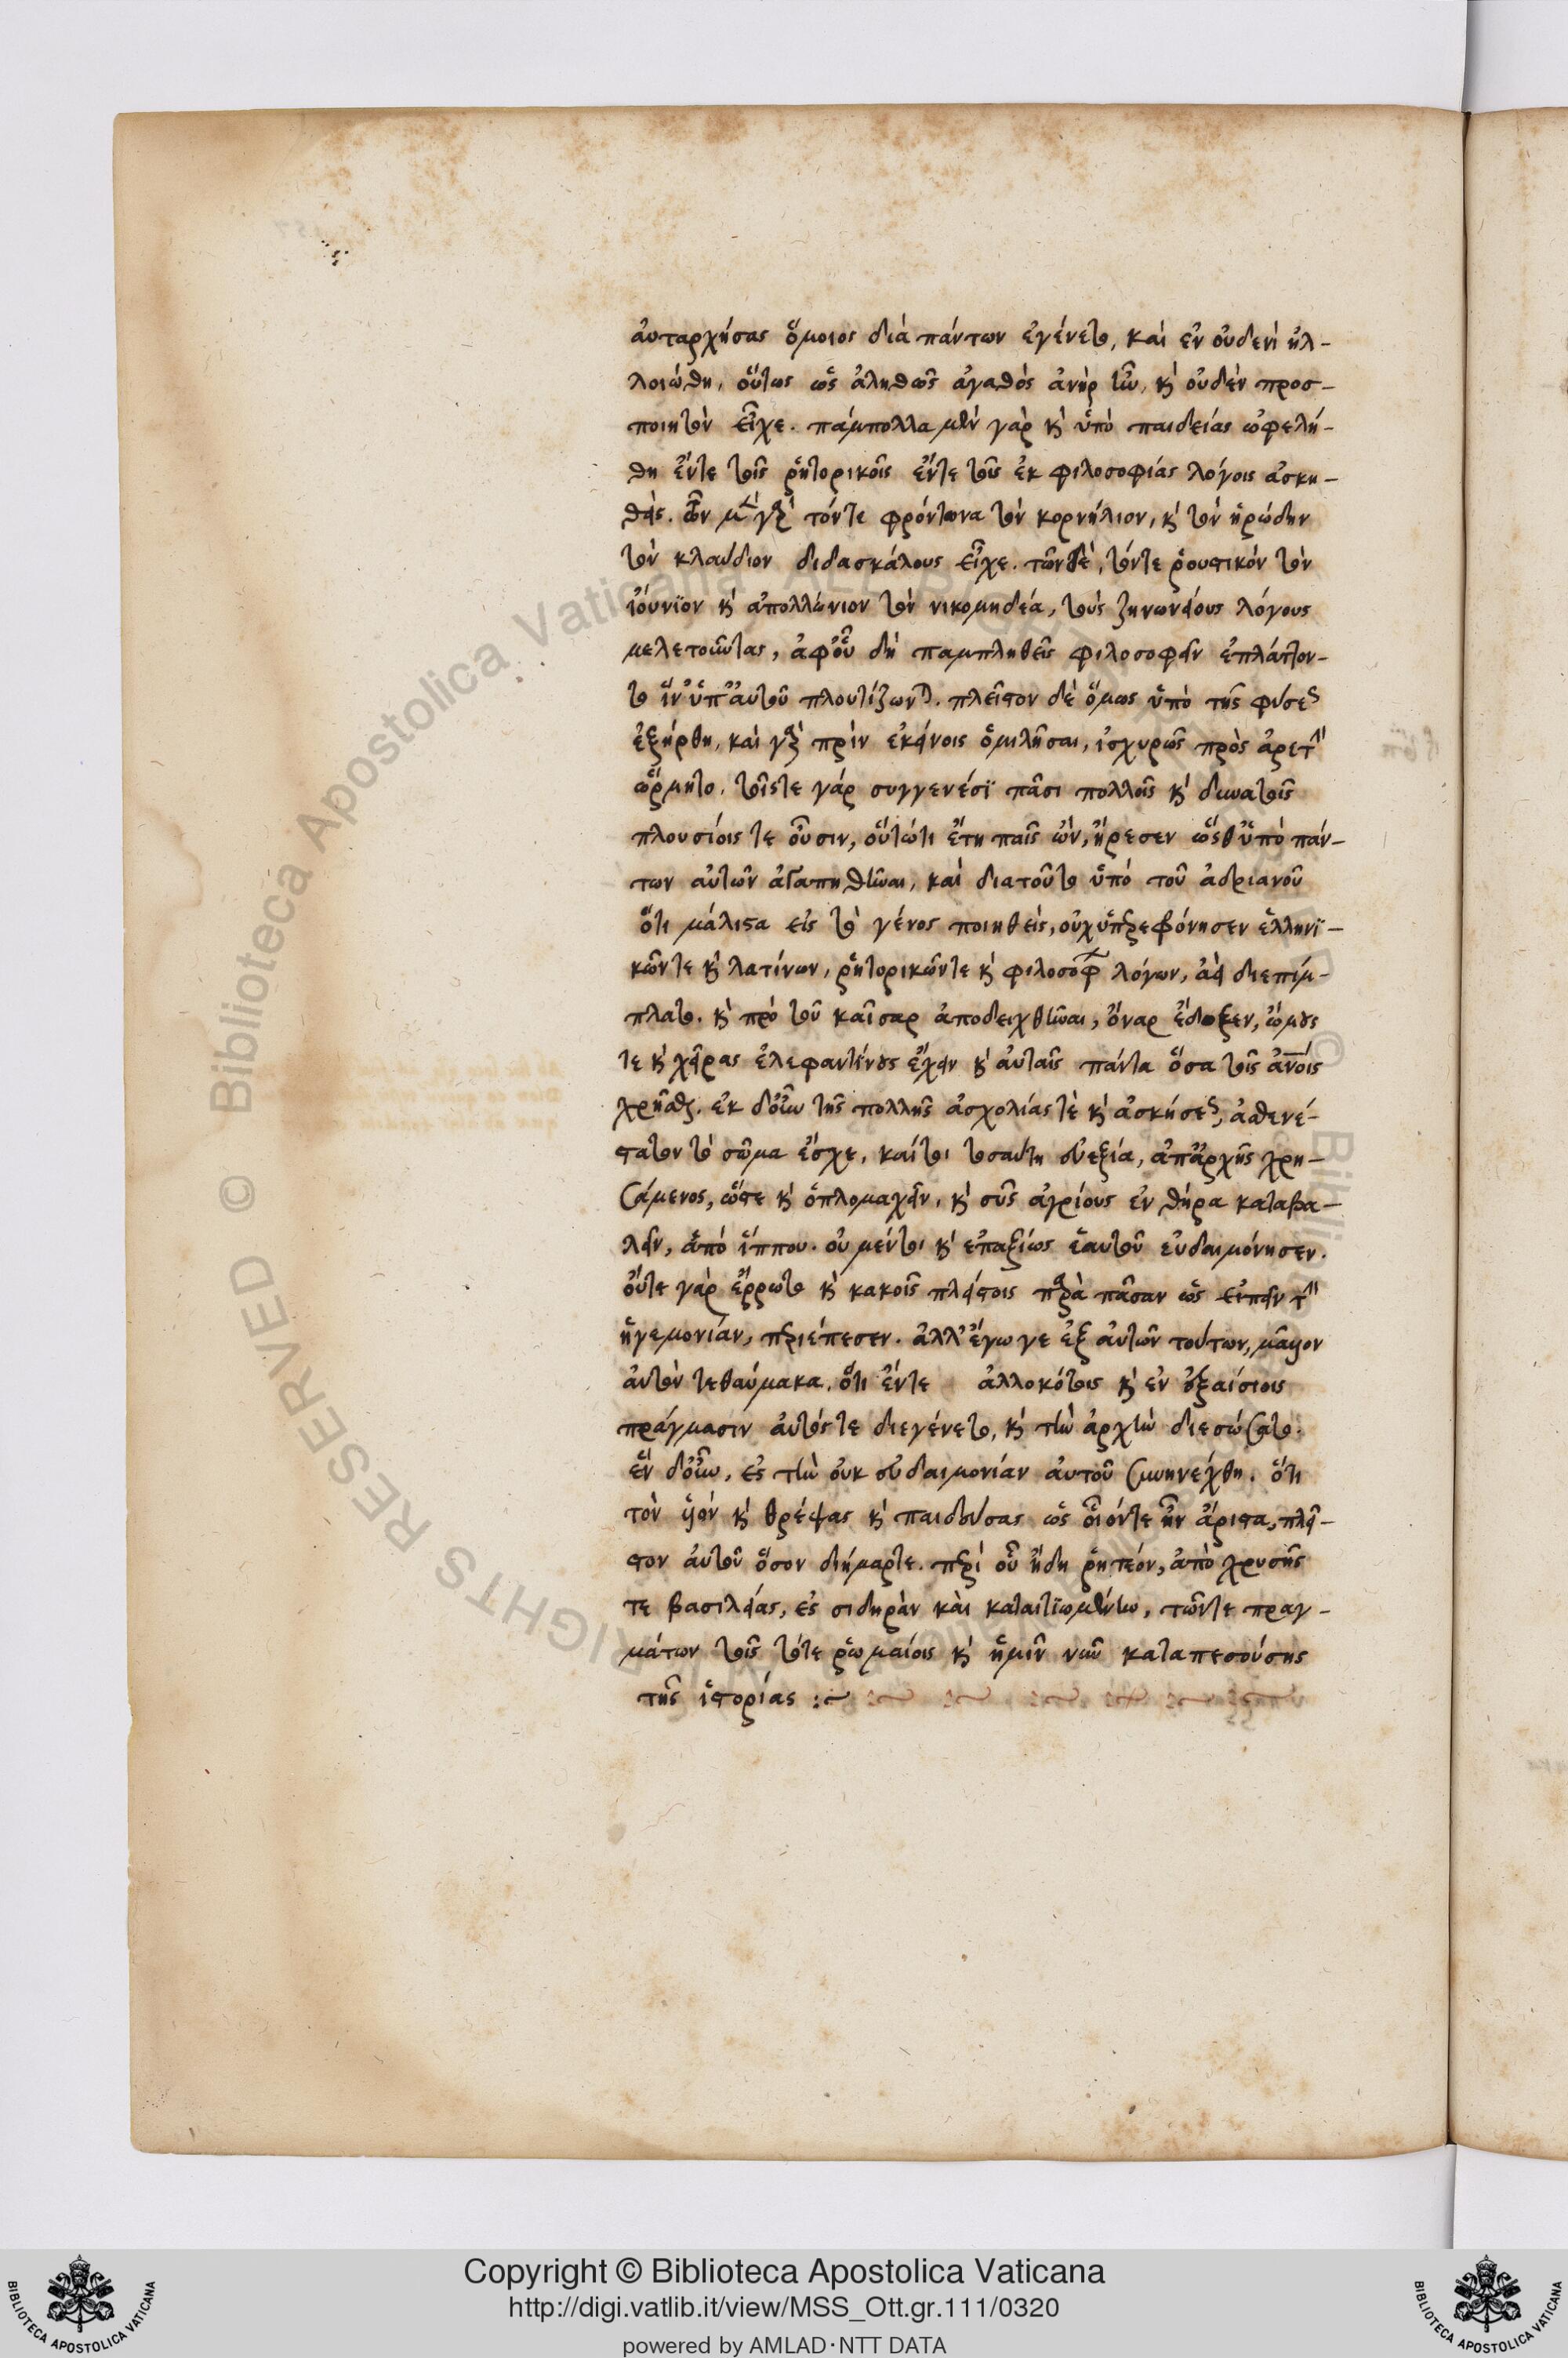 αὐταρχήσας ὅμοιος διὰ πάντων ἐγένετο, καὶ ἐν οὐδενὶ ἠλ-
λοιώθη, οὕτως ὡς ἀληθῶς ἀγαθὸς ἀνὴρ ἦν, κ̀ οὐδὲν προσ-
ποιητὸν εἶχε. πάμπολλα μὲν γὰρ κ̀ ὑπὸ παιδείας ὠφελή-
θη ἔντε τοῖς ῥητορικοῖς ἔντε τοῖς ἐκ φιλοσοφίας λόγοις ἀσκη-
θείς. ὧν μὲν γὰρ τόντε φρόντωνα τὸν κορνήλιον, κ̀ τὸν ἡρώδην
τὸν κλαύδιον διδασκάλους εἶχε. τῶν δὲ, τόντε ῥουστικὸν τὸν
ἰούνϊον κ̀ ἀπολλώνιον τὸν νικομηδέα, τοὺς ζηνωνείους λόγους
μελετοῦντας, ἀφοὗ δὴ παμπληθεῖς φιλοσοφεῖν ἐπλάττον-
το ἵν' ὑπ' αὐτοῦ πλουτίζωνται. πλεῖστον δὲ ὅμως ὑπὸ τῆς φύσεως
ἐξήρθη, καὶ γὰρ πρὶν ἐκείνοις ὁμιλῆσαι, ἰσχυρῶς πρὸς ἀρετὴν
ὥρμητο. τοῖστε γάρ συγγενέσϊ πᾶσι πολλοῖς κ̀ δυνατοῖς
πλουσίοις τε οὖσιν, οὕτώτι ἔτη παῖς ὢν, ἤρεσεν ὥσθ' ὑπὸ πάν-
των αὐτῶν ἀγαπηθῆναι, καὶ διατοῦτο ὑπὸ τοῦ ἀδριανοῦ
ὅτι μάλιστα εἰς τὸ γένος ποιηθεὶς, οὐχ ὑπερεφόνησεν ἑλληνϊ-
κῶντε κ̀ λατίνων, ῥητορικῶντε κ̀ φιλοσόφων λόγων, ἀεὶ διεπίμ-
πλατο. κ̀ πρὸ τοῦ καῖσαρ ἀποδειχθῆναι, ὄναρ ἔδοξεν, ὤμους
τε κ̀ χεῖρας ἐλεφαντίνους ἔχειν κ̀ αὐταῖς πάντα ὅσα τοῖς ἀνοις
χρῆσθαι. ἐκ δ' οὖν τῆς πολλῆς ἀσχολίας τὲ κ̀ ἀσκήσεως, ἀσθενέ-
στατον τὸ σῶμα ἔσχε, καίτοι τοσαύτη εὐεξία, ἀπ' ἀρχῆς χρη-
σάμενος, ὥστε κ̀ ὁπλομαχεῖν, κ̀ σῦς ἀγρίους ἐν θήρα καταβα-
λεῖν, ἀπὸ ἵππου. οὐ μέντοι κ̀ ἐπαξίως ἑαυτοῦ εὐδαιμόνησεν.
οὔτε γὰρ ἔρρωτο κ̀ κακοῖς πλείστοις παρὰ πᾶσαν ὡς εἰπεῖν τὴν
ἡγεμονίαν, περιέπεσεν. ἀλλ' ἔγωγε ἐξ αὐτῶν τούτων, μᾶλλον
αὐτὸν τεθαύμακα. ὅτι ἔντε ἀλλοκότοις κ̀ ἐν ἐξαισίοις
πράγμασιν αὐτόςτε διεγένετο, κ̀ τὴν ἀρχὴν διεσώσατο.
ἓν δ' οὖν, ἐς τὴν οὐκ εὐδαιμονίαν αὐτοῦ συνηνέχθη. ὅτι
τὸν υἱὸν κ̀ θρέψας κ̀ παιδεύσας ὡς οἷόντε ἦν ἄριστα, πλεῖ-
στον αὐτοῦ ὅσον διήμαρτε. περὶ οὗ ἤδη ῥητέον, ἀπὸ χρυσῆς
τε βασιλείας, ἐς σιδηρὰν κὰι κατιωμένην, τῶντε πραγ-
μάτων τοῖς τότε ῥωμαίοις κ̀ ἡμῖν νῦν καταπεσούσης
τῆς ἱστορίας :~
Copyright © Biblioteca Apostolica Vaticana
http://digi.vatlib.it/view/MSS_Ott.gr.111/0320
powered by AMLAD·NTT DATA
BIBLIOTECA APOSTOLICA VATICANA
BIBLIOTECA APOSTOLICA VATICANA